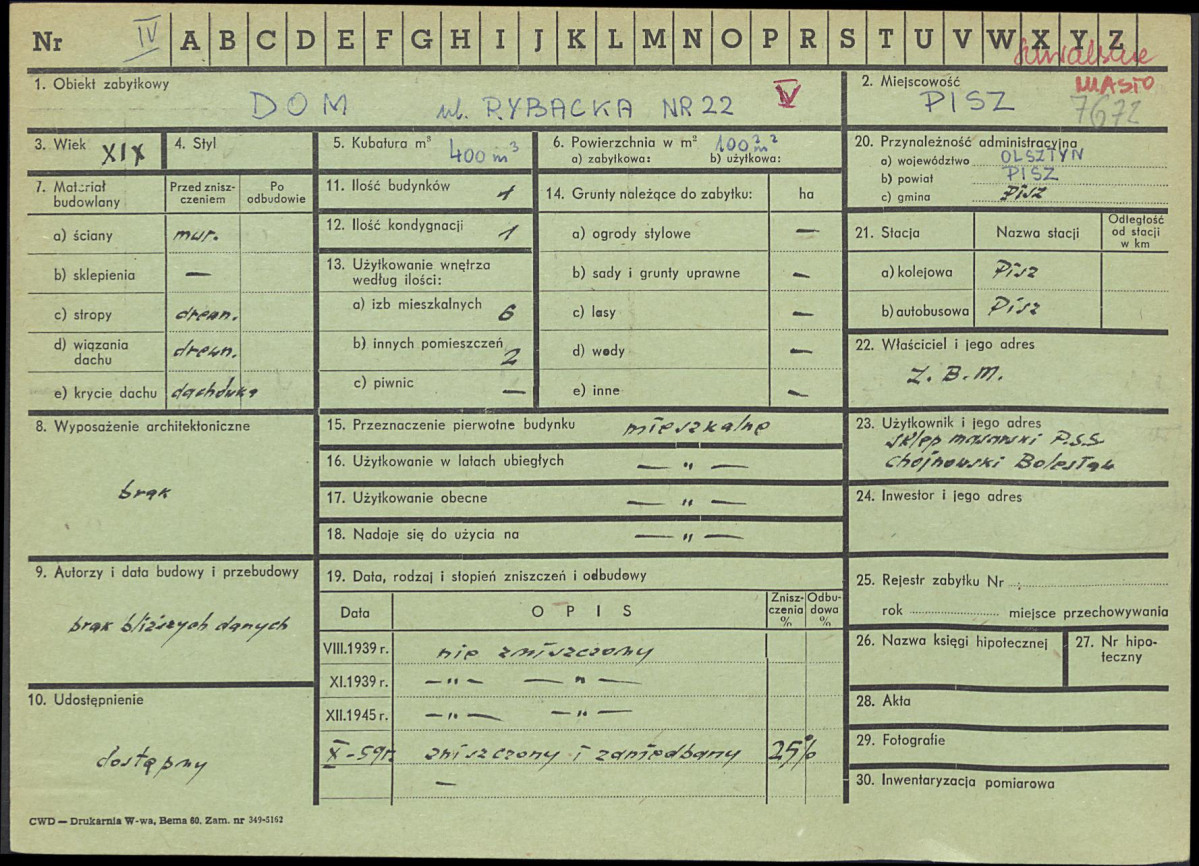 Nr IV A B C D E F G H I J K L M N O P R S T U V W X Y Z
Suwalskie
1. Obiekt zabytkowy
DOM ul. RYBACKA NR 22 IV
2. Miejscowość MIASTO
PISZ 7672
3. Wiek XIX
4. Styl
5. Kubatura m³ 400 m³
6. Powierzchnia w m² 100 m²
a) zabytkowa: b) użytkowa:
20. Przynależność administracyjna
a) województwo OLSZTYN
b) powiat PISZ
c) gmina Pisz
7. Materiał budowlany
Przed zniszczeniem
Po odbudowie
a) ściany mur.
b) sklepienia —
c) stropy drewn.
d) wiązania dachu drewn.
e) krycie dachu dachówka
11. Ilość budynków 1
12. Ilość kondygnacji 1
13. Użytkowanie wnętrza według ilości:
a) izb mieszkalnych 6
b) innych pomieszczeń 2
c) piwnic —
14. Grunty należące do zabytku: ha
a) ogrody stylowe —
b) sady i grunty uprawne —
c) lasy —
d) wody —
e) inne —
21. Stacja Nazwa stacji Odległość od stacji w km
a) kolejowa Pisz
b) autobusowa Pisz
22. Właściciel i jego adres
Z.B.M.
8. Wyposażenie architektoniczne
brak
15. Przeznaczenie pierwotne budynku mieszkalne
16. Użytkowanie w latach ubiegłych — " —
17. Użytkowanie obecne — " —
18. Nadaje się do użycia na — " —
23. Użytkownik i jego adres
sklep masarski P.S.S.
Chojnowski Bolesław
24. Inwestor i jego adres
9. Autorzy i data budowy i przebudowy
brak bliższych danych
10. Udostępnienie
dostępny
19. Data, rodzaj i stopień zniszczeń i odbudowy
Data OPIS Zniszczenia % Odbudowa %
VIII.1939 r. nie zniszczony
XI.1939 r. — " — — " —
XII.1945 r. — " — — " —
X-59r. zniszczony i zaniedbany 25%
—
25. Rejestr zabytku Nr
rok miejsce przechowywania
26. Nazwa księgi hipotecznej
27. Nr hipoteczny
28. Akta
29. Fotografie
30. Inwentaryzacja pomiarowa
CWD — Drukarnia W-wa, Bema 60. Zam. nr 349-5162